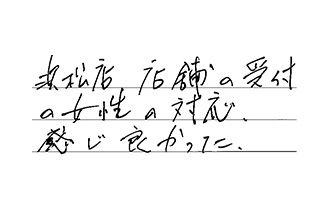 浜松店 店舗の受付
の女性の対応、
感じ良かった、